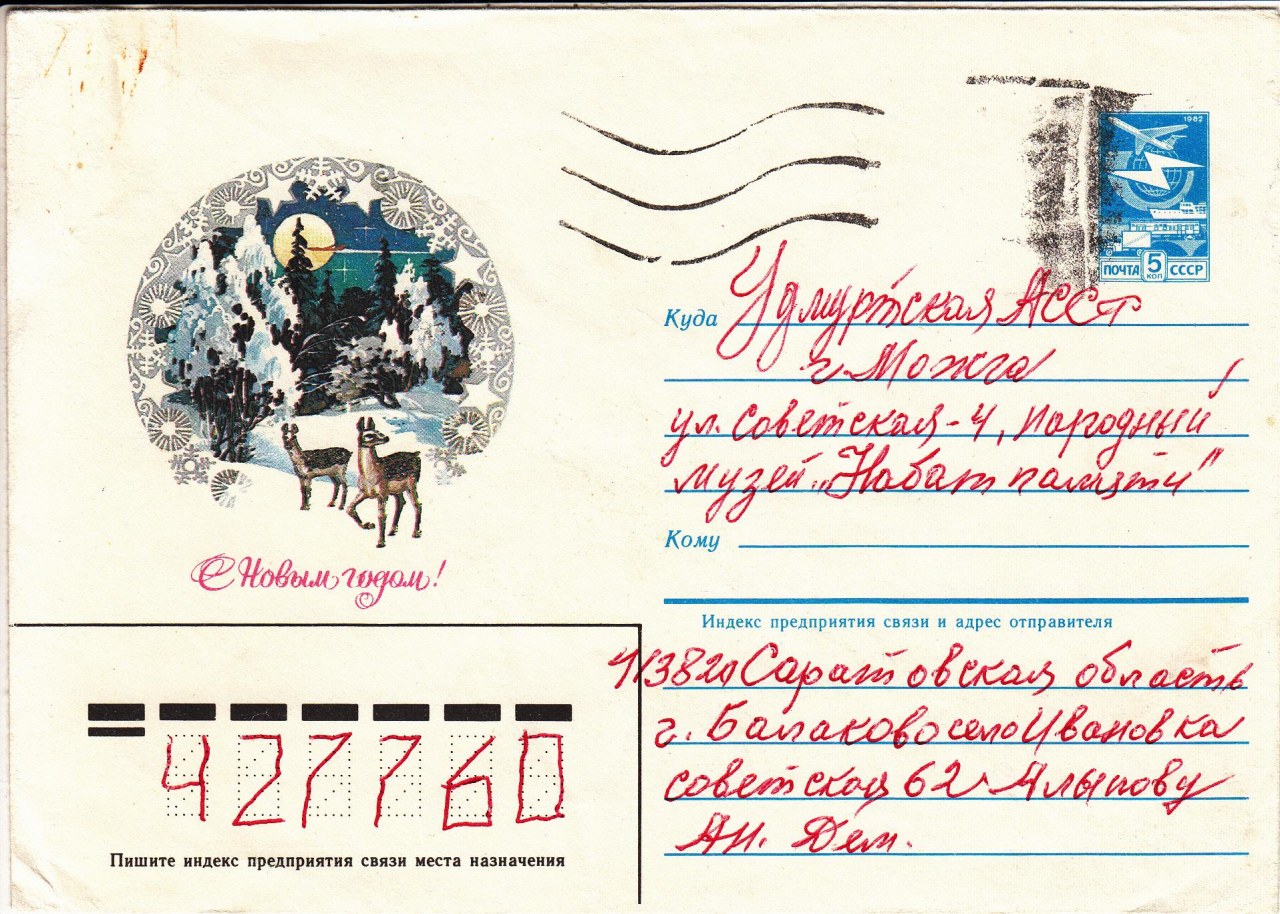 1982
ПОЧТА 5 КОП СССР
Куда Удмуртская АССР
г. Можга
ул. Советская-4, народный
музей „Набат памяти"
Кому
С Новым годом!
Индекс предприятия связи и адрес отправителя
Саратовская область
г. Балаково село Ивановка
советская 62 Алыпову
Ан. Дем.
427760
Пишите индекс предприятия связи места назначения